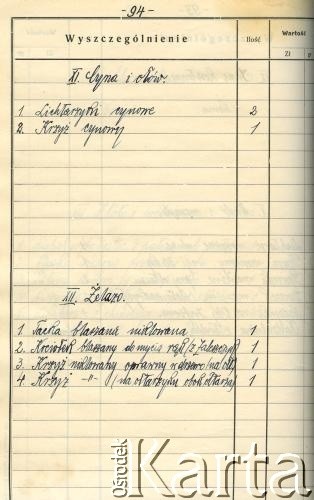 - 94 -
Wyszczególnienie Ilość Wartość
Zł
XI. Cyna i ołów.
1 Lichtarzyki cynowe 2
2. Krzyż cynowy 1
XII. Żelazo.
1 Tacka blaszana niklowana 1
2. Kociołek blaszany do mycia rąk 1
3 Krzyż niklowany oprawny w drzewo 1
4 Krzyż -"- (na ołtarzyku obok ołtarza) 1
ośrodek Karta